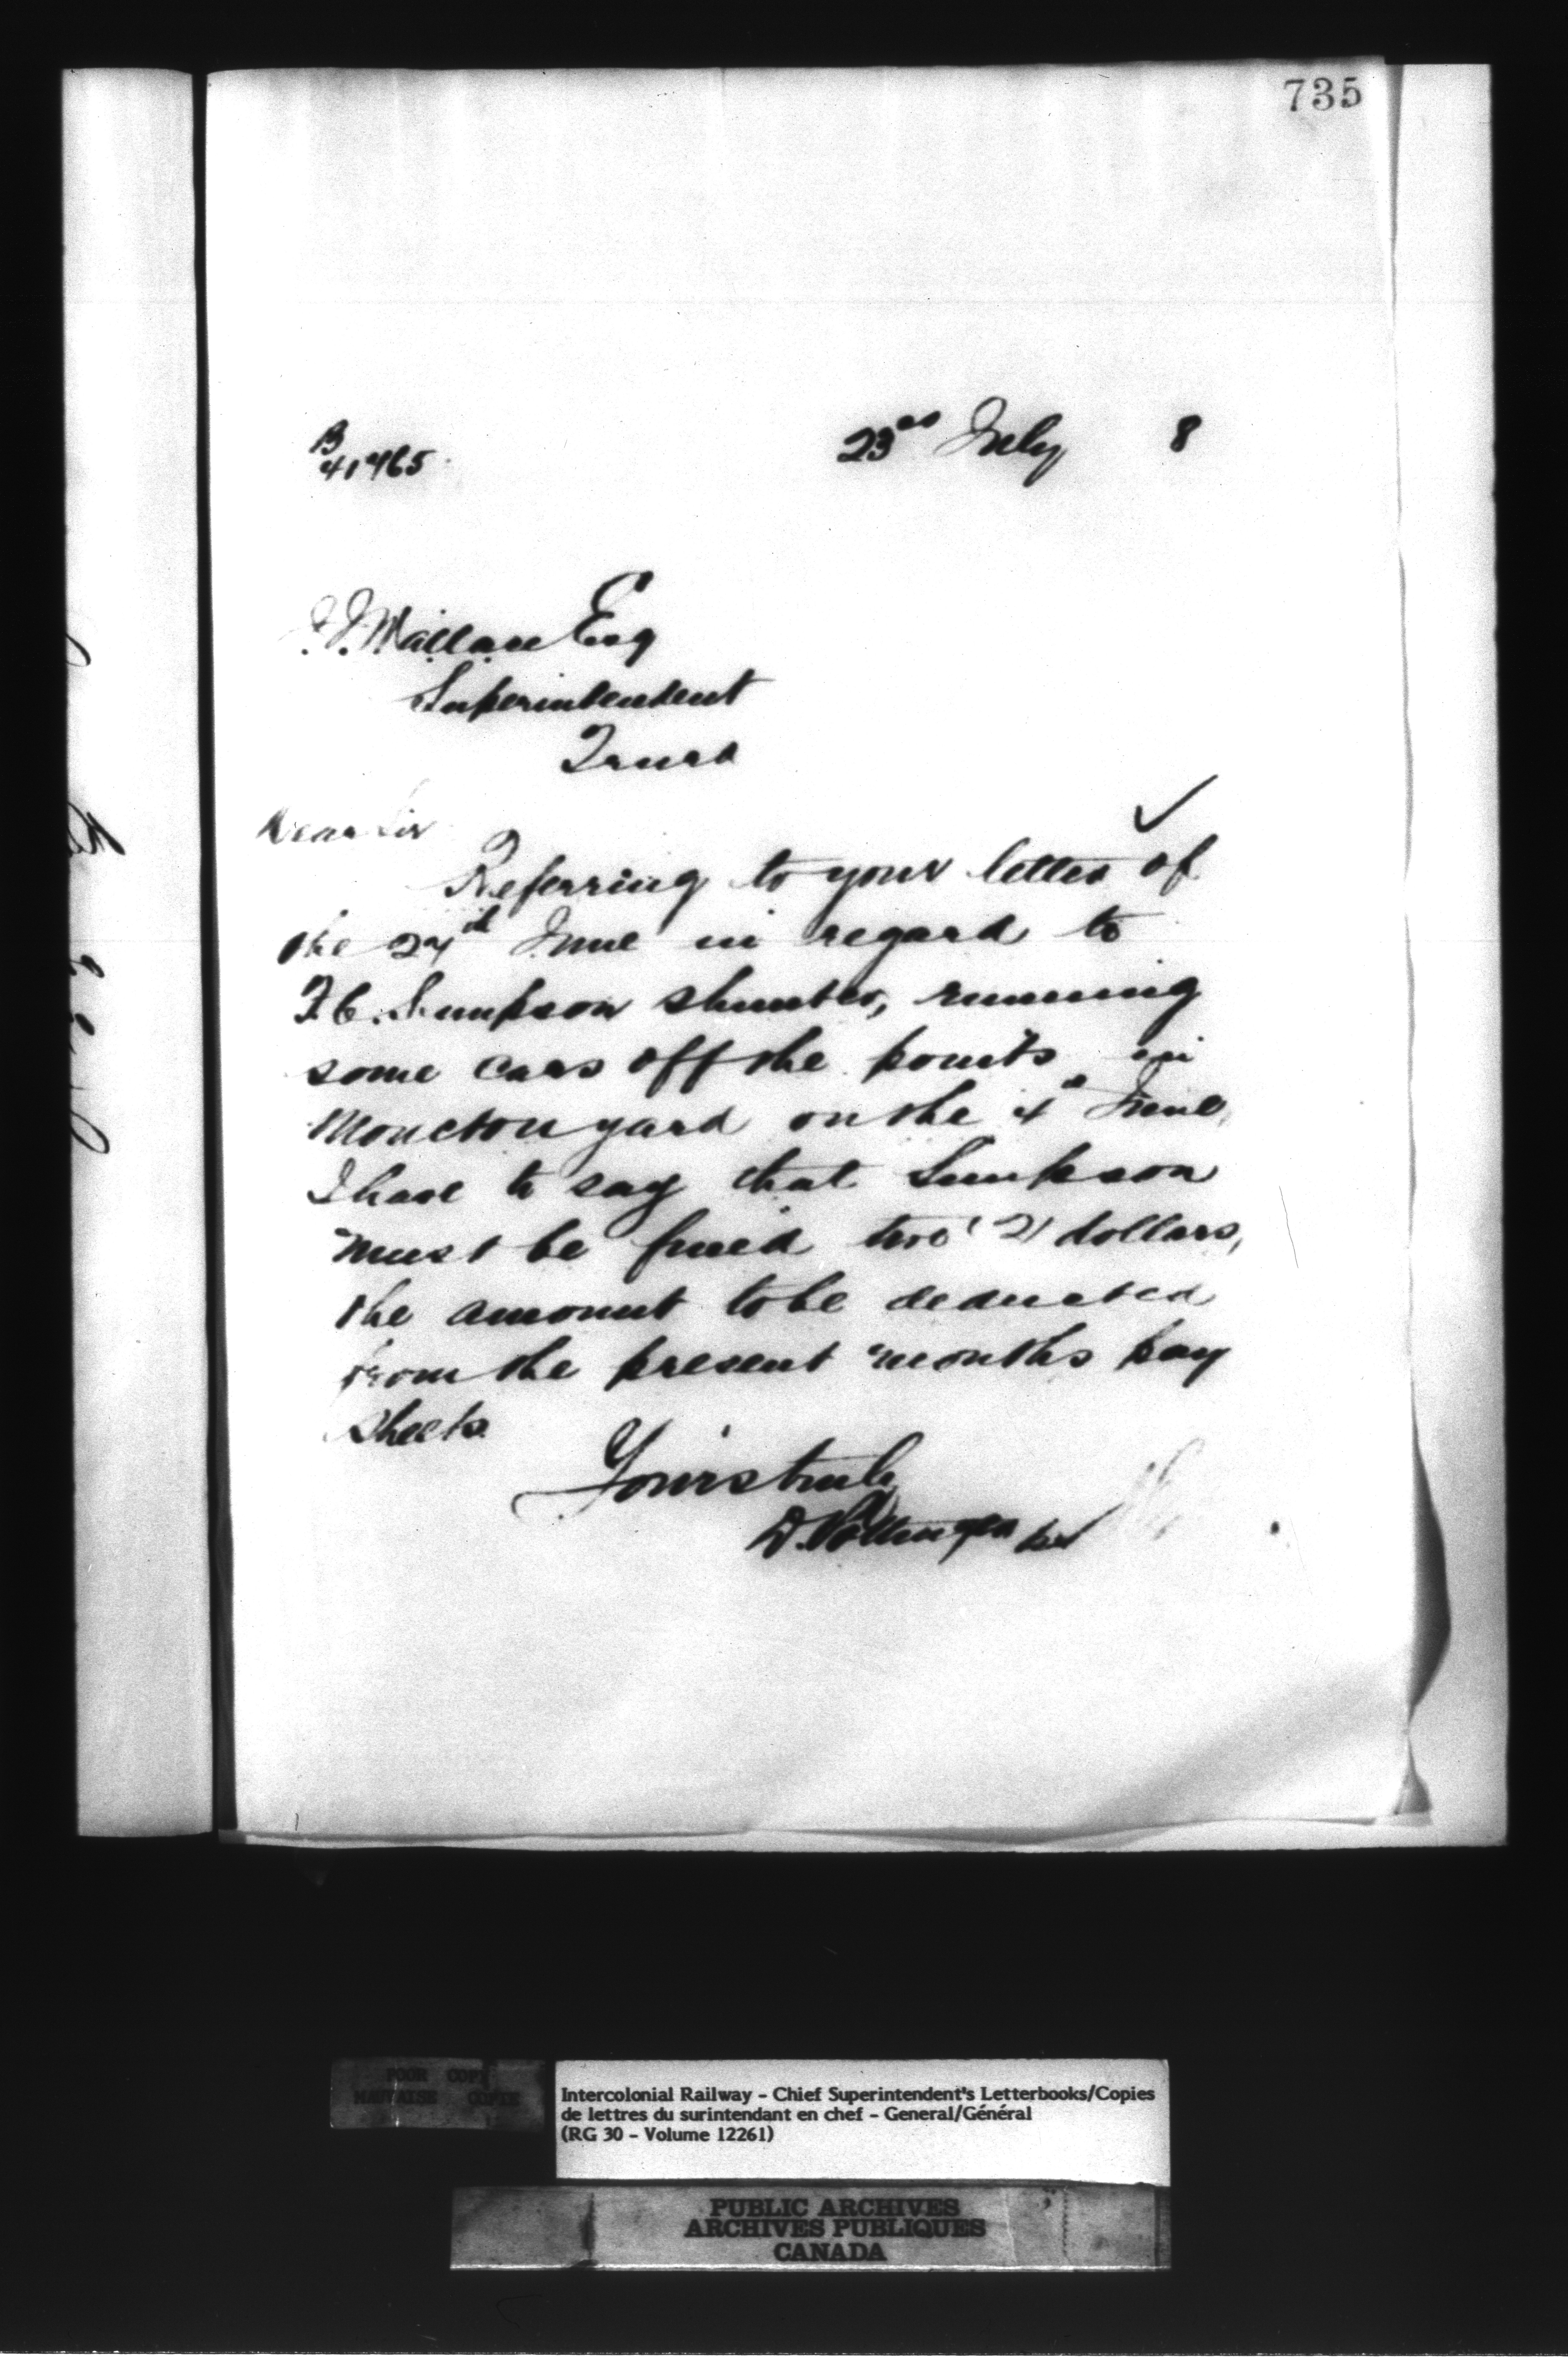 735
B
41465
23rd July 8
J. J. Wallace Esq
Superintendent
Truro
Dear Sir
Referring to your letter of
the 27th June in regard to
F. C. Simpson shunter, running
some cars off the points in
Moncton yard on the 4th June,
I have to say that Simpson
must be fined two (2) dollars,
the amount to be deducted
from the present months pay
sheets.
Yours truly
D. Pottinger
POOR COPY
MAUVAISE COPIE
Intercolonial Railway - Chief Superintendent's Letterbooks/Copies
de lettres du surintendant en chef - General/Général
(RG 30 - Volume 12261)
PUBLIC ARCHIVES
ARCHIVES PUBLIQUES
CANADA